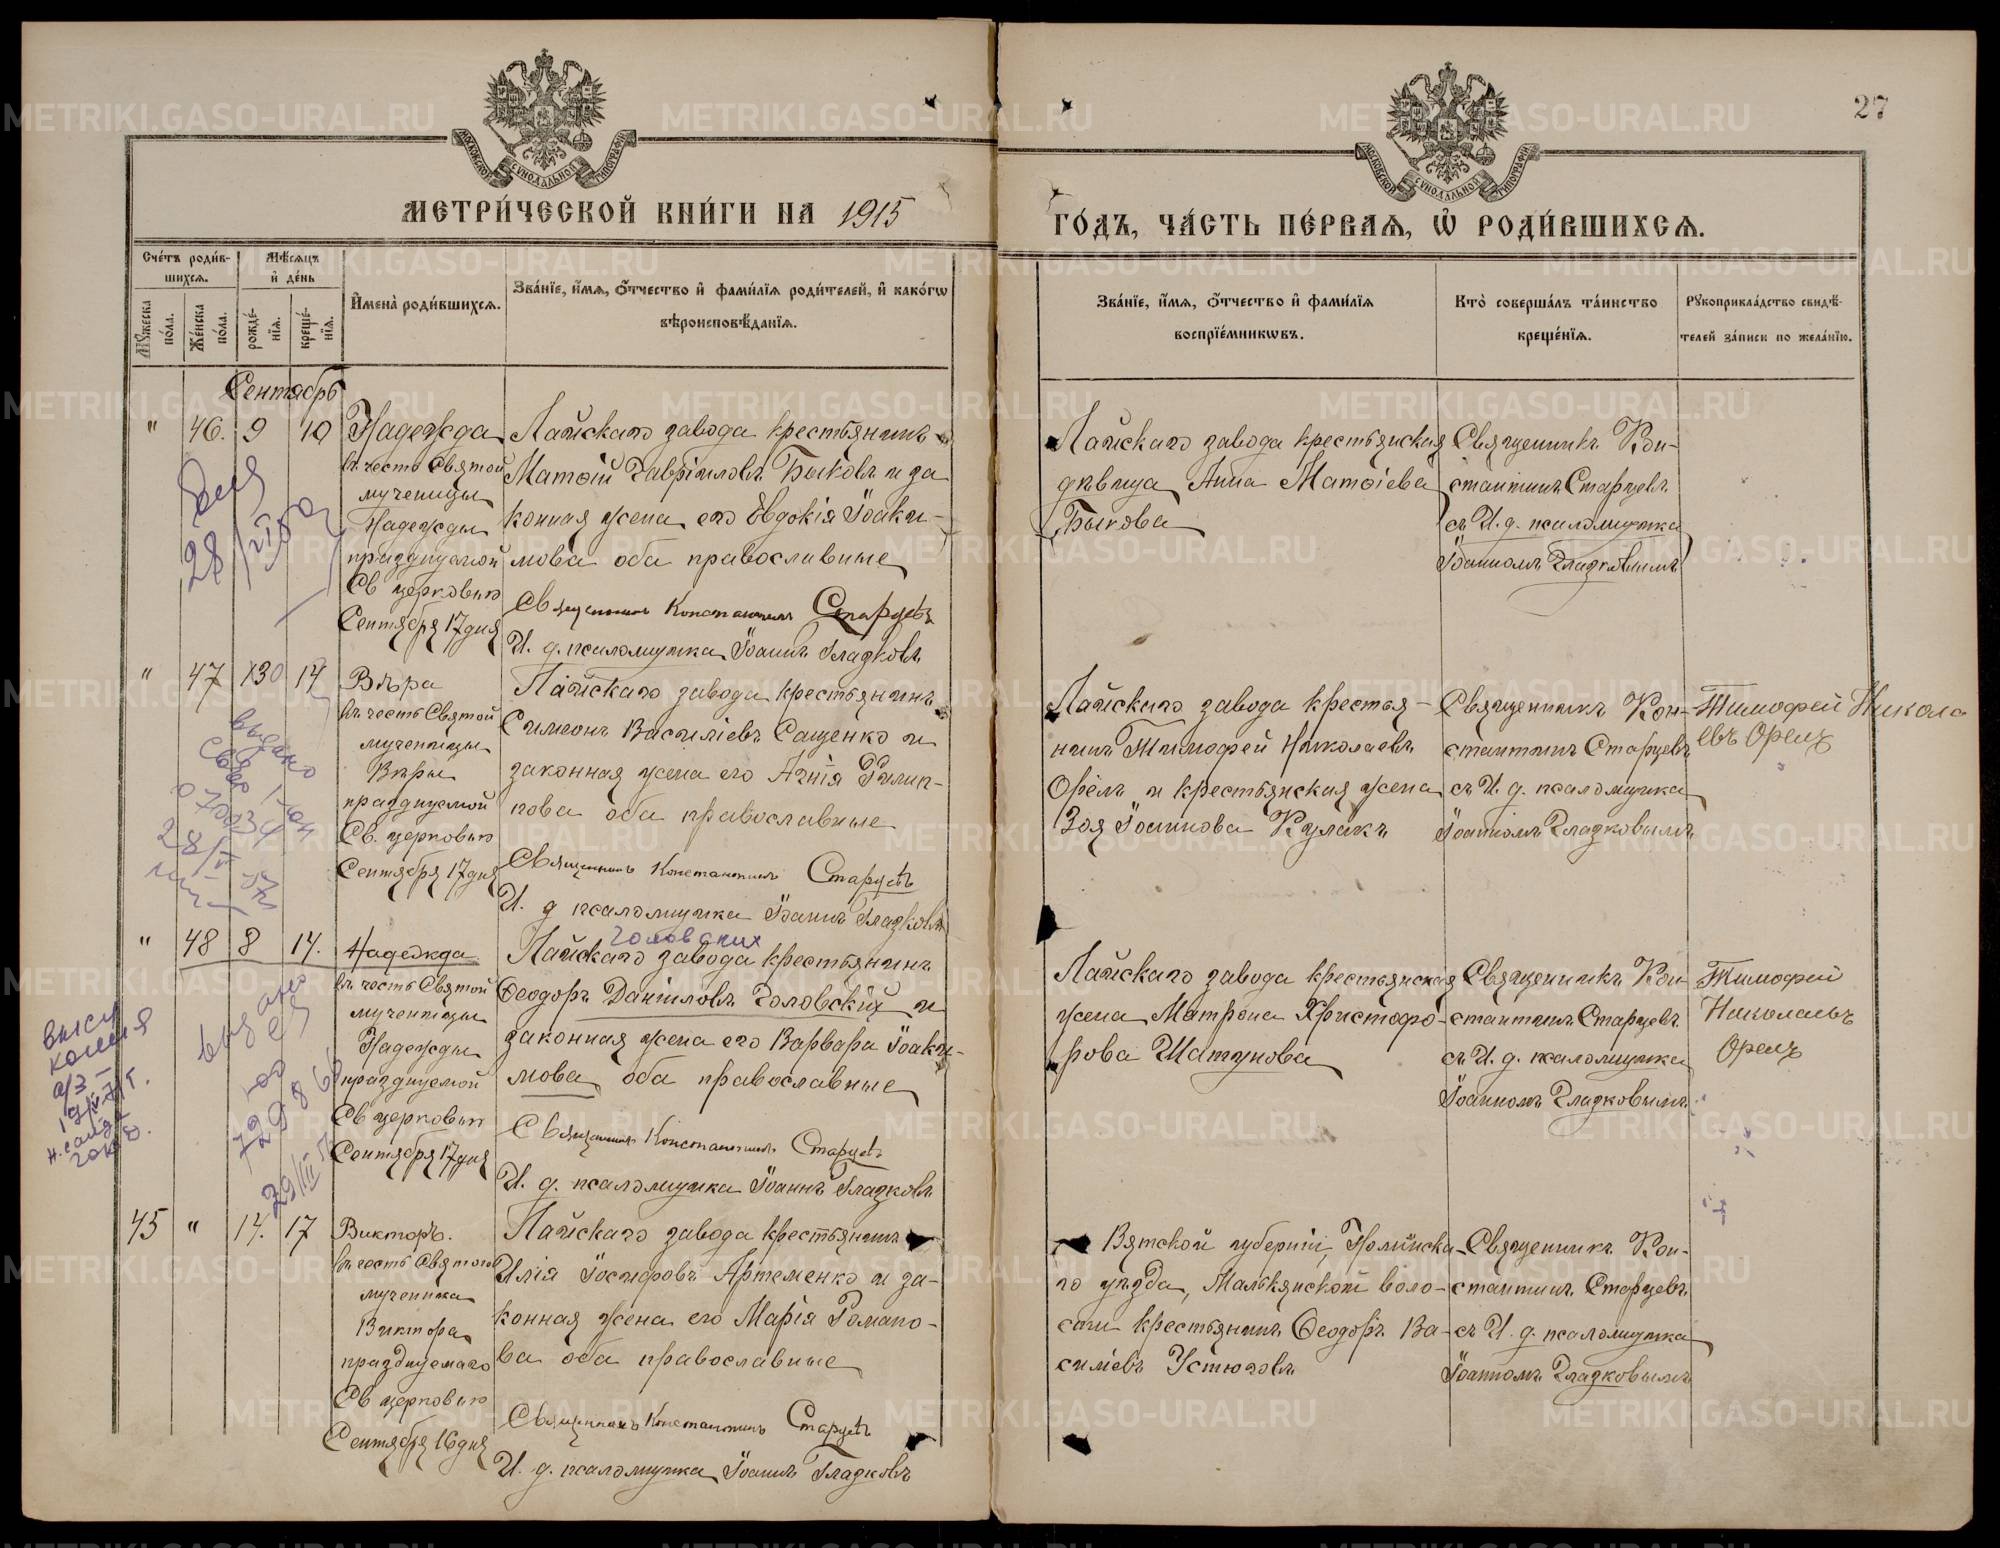 27
МЕТРИ́ЧЕСКОЙ КНИ́ГИ НА 1915
ГО́ДЪ, ЧА́СТЬ ПЕ́РВАЯ, Ѡ҆ РОДИ́ВШИХСЯ.
Сче́тъ роди́в-
шихся.
Мѣ́сяцъ
и҆ де́нь
Мꙋ́жеска
по́ла.
Же́нска
по́ла.
рожде́-
нїя.
креще́-
нїя.
И҆мена̀ роди́вшихся.
Зва́нїе, и҆́мя, ѻ҆́тчество и҆ фами́лїя роди́телей, и҆ како́гѡ
вѣроисповѣ́данїя.
Зва́нїе, и҆́мя, ѻ҆́тчество и҆ фами́лїя
воспрїе́мникѡвъ.
Кто̀ соверша́лъ та́инство
креще́нїя.
Рꙋкоприкла́дство свидѣ́-
телей за́писи по жела́нїю.
Сентябрь
" 46. 9 10
Надежда
въ честь Святой
мученицы
Надежды
празднуемой
Св церковью
Сентября 17 дня
Лайскаго завода крестьянинъ
Матѳій Гавріиловъ Быковъ и за
конная жена его Евдокія Іоаки-
мова оба православные
Священникъ Константинъ Старцевъ
И. д. псаломщика Іоаннъ Гладковъ
Лайскаго завода крестьянская
дѣвица Анна Матѳіева
Быкова
Священникъ Кон-
стантинъ Старцевъ
съ И. д. псаломщика
Іоанномъ Гладковымъ
" 47 30 14
Вѣра
въ честь Святой
мученицы
Вѣры
празднуемой
Св. церковью
Сентября 17 дня
Лайскаго завода крестьянинъ
Симеонъ Васильевъ Сащенко и
законная жена его Агнія Филип-
пова оба православные
Священникъ Константинъ Старцевъ
И. д псаломщика Іоаннъ Гладковъ
Лайскаго завода крестья-
нинъ Тимофей Николаевъ
Орелъ и крестьянская жена
Зоя Іоаннова Кулакъ
Священникъ Кон-
стантинъ Старцевъ
съ И. д. псаломщика
Іоанномъ Гладковымъ
Тимофей Никола
евъ Орелъ
выдано
28/
" 48 8 14.
Надежда
въ честь Святой
мученицы
Надежды
празднуемой
Св церковью
Сентября 17 дня
Головских
Лайскаго завода крестьянинъ
Ѳеодоръ Даніиловъ Головскій и
законная жена его Варвара Іоаки-
мова оба православные
Священникъ Константинъ Старцевъ
И. д. псаломщика Іоаннъ Гладковъ
Лайскаго завода крестьянская
жена Матрона Христофо-
рова Шатунова
Священникъ Кон-
стантинъ Старцевъ
съ И. д. псаломщика
Іоанномъ Гладковымъ
Тимофей
Николаевъ
Орелъ
выдано
копия
45 " 14. 17
Викторъ.
въ честь Святого
мученика
Виктора
празднуемаго
Св церковью
Сентября 16 дня
Лайскаго завода крестьянинъ
Илія Іосифовъ Артеменко и за-
конная жена его Марія Романо-
ва оба православные
Священникъ Константинъ Старцевъ
И. д. псаломщика Іоаннъ Гладковъ
Вятской губерніи, Нолинска-
го уѣзда, волo-
сти крестьянинъ Ѳеодоръ Ва-
сильевъ Устюговъ
Священникъ Кон-
стантинъ Старцевъ
съ И. д. псаломщика
Іоанномъ Гладковымъ
METRIKI.GASO-URAL.RU